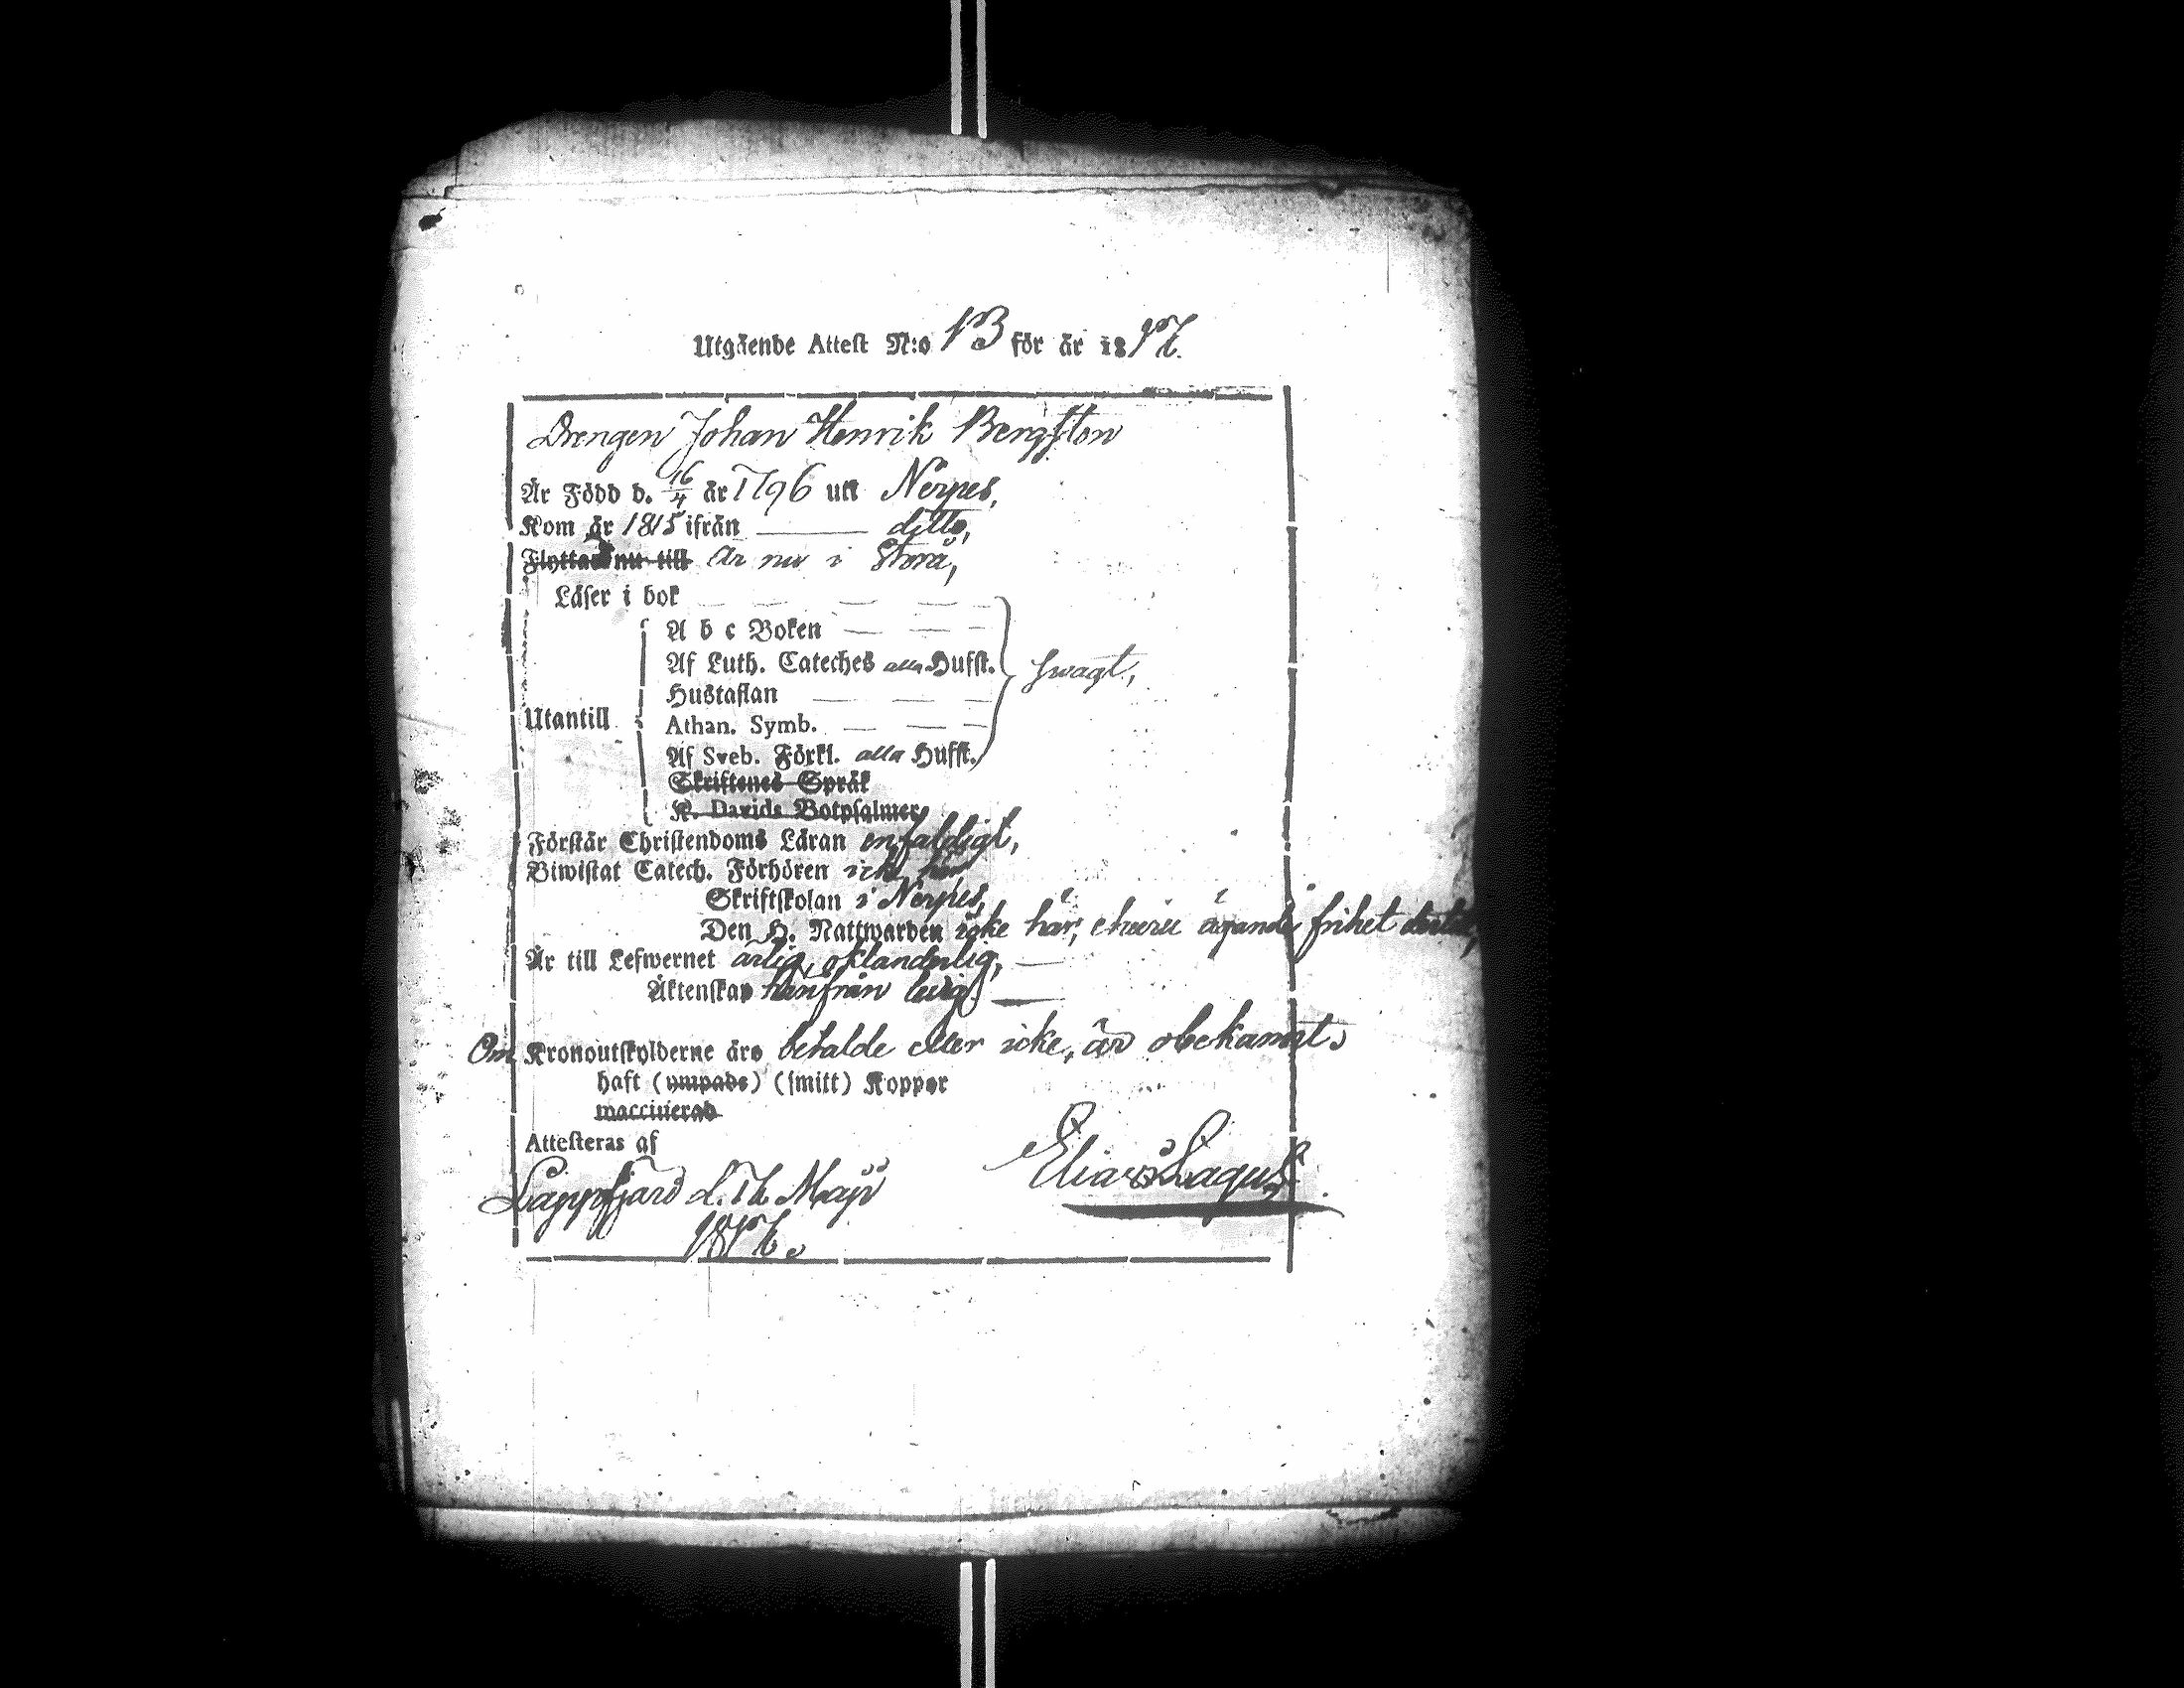 Utgående Attest N:o 13 för år 1817.
Drengen Johan Henrik Bergston
Är Född d. 16/4 år 1796 uti Nerpes,
Kom år 1815 ifrån ditto,
Flyttar nu till Är nu i Storå,
Läser i bok
A b c Boken
Af Luth. Cateches alla Hufst.
swagt,
Hustaflan
Utantill
Athan. Symb.
Af Sveb. Förkl. alla Hufst.
Skriftenes Språk
K. Davids Botpsalmer
Förstår Christendoms Läran enfaldigt,
Biwistat Catech. Förhören icke här
Skriftskolan i Nerpes,
Den H. Nattwarden icke här, ehuru ägande frihet dertill,
Är till Lefwernet ärlig, oklanderlig,
Äktenskap härifrån ledig.
Om Kronoutskylderne äro betalde eller icke, är obekannt,
haft (ympade) (smitt) Koppor
vaccinerad
Attesteras af
Lappfjärd d. 17 Maji Elias Lagus.
1817.